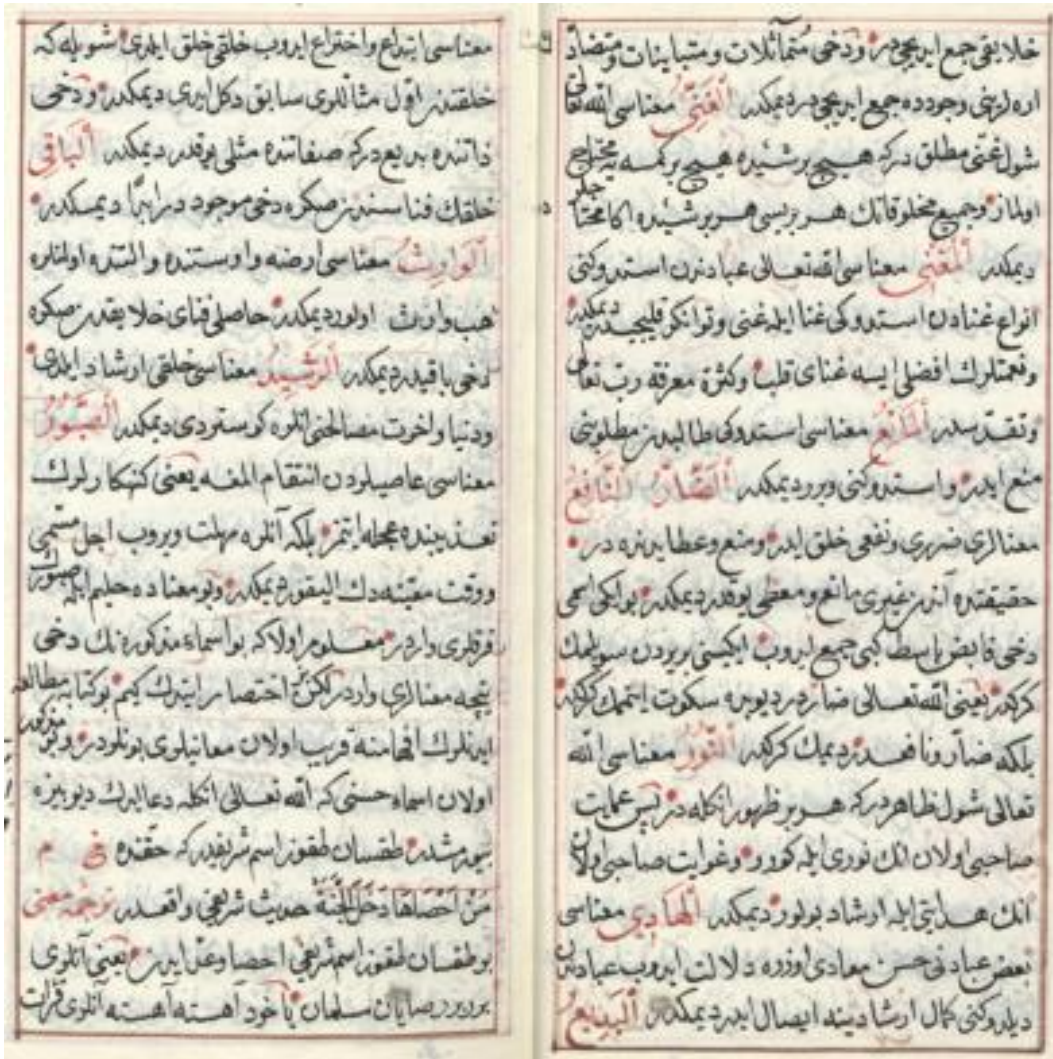 خلايقى جمع ايديجى در ودخى متماثلات ومتباينات ومتضاد
اره لرينى وجودده جمع ايديجى در ديمكدر اَلْغَنِىُّ معناسى الله تعالى
شول غنى مطلق در كه هيچ بر شيئده هيچ بر كمسه يه محتاج
اولماز وجميع مخلوقاتك هر بريسى هر بر شيئده اكا محتاجلر
ديمكدر اَلْمُغْنِى معناسى الله تعالى عبادندن استدوكنى
انواع غنادن استدوكى غنا ايله غنى وتوانكر قليجيدر ديمكدر
ونعمتلرك افضلى ايسه غناى قلب وكثرة معرفة رب تعالى
وتقدسدر اَلْمَانِعُ معناسى استدوكى طالبدن مطلوبنى
منع ايدر واستدوكنى ويرر ديمكدر اَلضَّارُّ اَلنَّافِعُ
معنالرى ضررى ونفعى خلق ايدر ومنع وعطا يدنده در
حقيقتده آندن غيرى مانع ومعطى يوقدر ديمكدر بو ايكى اسمى
دخى قابض باسط كبى جمع ايدوب ايكيسنى بريردن سويلمك
كركدر يعنى الله تعالى ضاردر ديوب سكوت ايتمك كركدر
بلكه ضار ونافعدر ديمك كركدر اَلنُّورُ معناسى الله
تعالى شول ظاهردر كه هر بر ظهور انكله در پس عمايت
صاحبى اولان انك نورى ايله كورر وغوايت صاحبى اولان
انك هدايتى ايله ارشاد بولور ديمكدر اَلْهَادِى معناسى
بعض عبادنى حسن معادى اوزره دلالت ايدوب عبادندن
ديلدوكنى كمال ارشادينه ايصال ايدر ديمكدر اَلْبَدِيعُ
معناسى ابتداع واختراع ايدوب خلقى خلق ايلدى شويله كه
خلقتدن اول مثاللرى سابق دكل ايدى ديمكدر ودخى
ذاتنده بديعدر كه صفاتنده مثلى يوقدر ديمكدر اَلْبَاقِى
خلقك فناسندن صكره دخى موجود در ابدًا ديمكدر
اَلْوَارِثُ معناسى ارضه واوستنده والتنده اولنلره
هب وارث اولور ديمكدر حاصلى فناى خلايقدن صكره
دخى باقيدر ديمكدر اَلرَّشِيدُ معناسى خلقى ارشاد ايلدى
ودنيا واخرت مصالحنى انلره كوستردى ديمكدر اَلصَّبُورُ
معناسى عاصيلردن انتقام المغه يعنى كنهكارلرك
تعذيبنده عجله ايتمز بلكه آنلره مهلت ويروب اجل مسمى
ووقت معينه دك اليقور ديمكدر وبو معناده حليم ايله صبورك
فرقلرى واردر معلوم اولا كه بو اسماء مذكوره نك دخى
نيچه معنالرى واردر لكن اختصار ايتدك كيم بو كتابه مطالعه
ايدنلرك افهامنه قريب اولان معانيلرى بونلردر ومذكور
اولان اسماء حسنى كه الله تعالى انكله دعا ايدك ديو بيزه
بيورمشدر طقسان طقوز اسم شريفدر كه حقنده
مَنْ اَحْصَاهَا دَخَلَ الْجَنَّةَ حديث شريفى واقعدر ترجمهٔ معنى
بو طقسان طقوز اسم شريفى احصا وعد ايدن يعنى آنلرى
برر برر صايان مسلمان ياخود آهسته آهسته آنلرى قرات